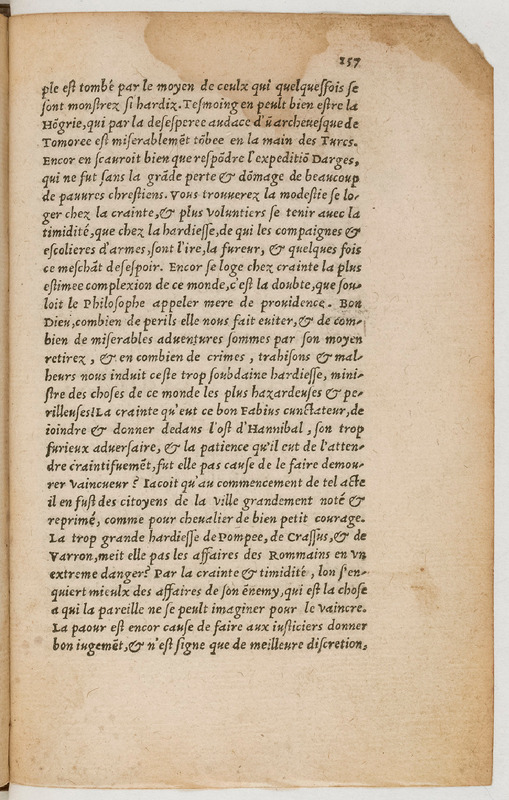 157
ple est tombé par le moyen de ceulx qui quelquesfois se
sont monstrez si hardiz. Tesmoing en peult bien estre la
Hõgrie, qui par la desesperee audace d'ũ archeuesque de
Tomoree est miserablemẽt tõbee en la main des Turcs.
Encor en scauroit bien que respõdre l'expeditiõ Darges,
qui ne fut sans la grãde perte & dõmage de beaucoup
de pauures chrestiens. Vous trouuerez la modestie se lo-
ger chez la crainte, & plus voluntiers se tenir auec la
timidité, que chez la hardiesse, de qui les compaignes &
escolieres d'armes, sont l'ire, la fureur, & quelques fois
ce meschãt desespoir. Encor se loge chez crainte la plus
estimee complexion de ce monde, c'est la doubte, que sou-
loit le Philosophe appeler mere de prouidence. Bon
Dieu, combien de perils elle nous fait euiter, & de com-
bien de miserables aduentures sommes par son moyen
retirez, & en combien de crimes, trahisons & mal-
heurs nous induit ceste trop soubdaine hardiesse, mini-
stre des choses de ce monde les plus hazardeuses & pe-
rilleuses! La crainte qu'eut ce bon Fabius cunctateur, de
ioindre & donner dedans l'ost d'Hannibal, son trop
furieux aduersaire, & la patience qu'il eut de l'atten-
dre craintifuemẽt, fut elle pas cause de le faire demou-
rer vaincueur? Iacoit qu'au commencement de tel acte
il en fust des citoyens de la ville grandement noté &
reprimé, comme pour cheualier de bien petit courage.
La trop grande hardiesse de Pompee, de Crassus, & de
Varron, meit elle pas les affaires des Rommains en vn
extreme danger? Par la crainte & timidité, lon s'en-
quiert mieulx des affaires de son ennemy, qui est la chose
a qui la pareille ne se peult imaginer pour le vaincre.
La paour est encor cause de faire aux iusticiers donner
bon iugemẽt, & n'est signe que de meilleure discretion,